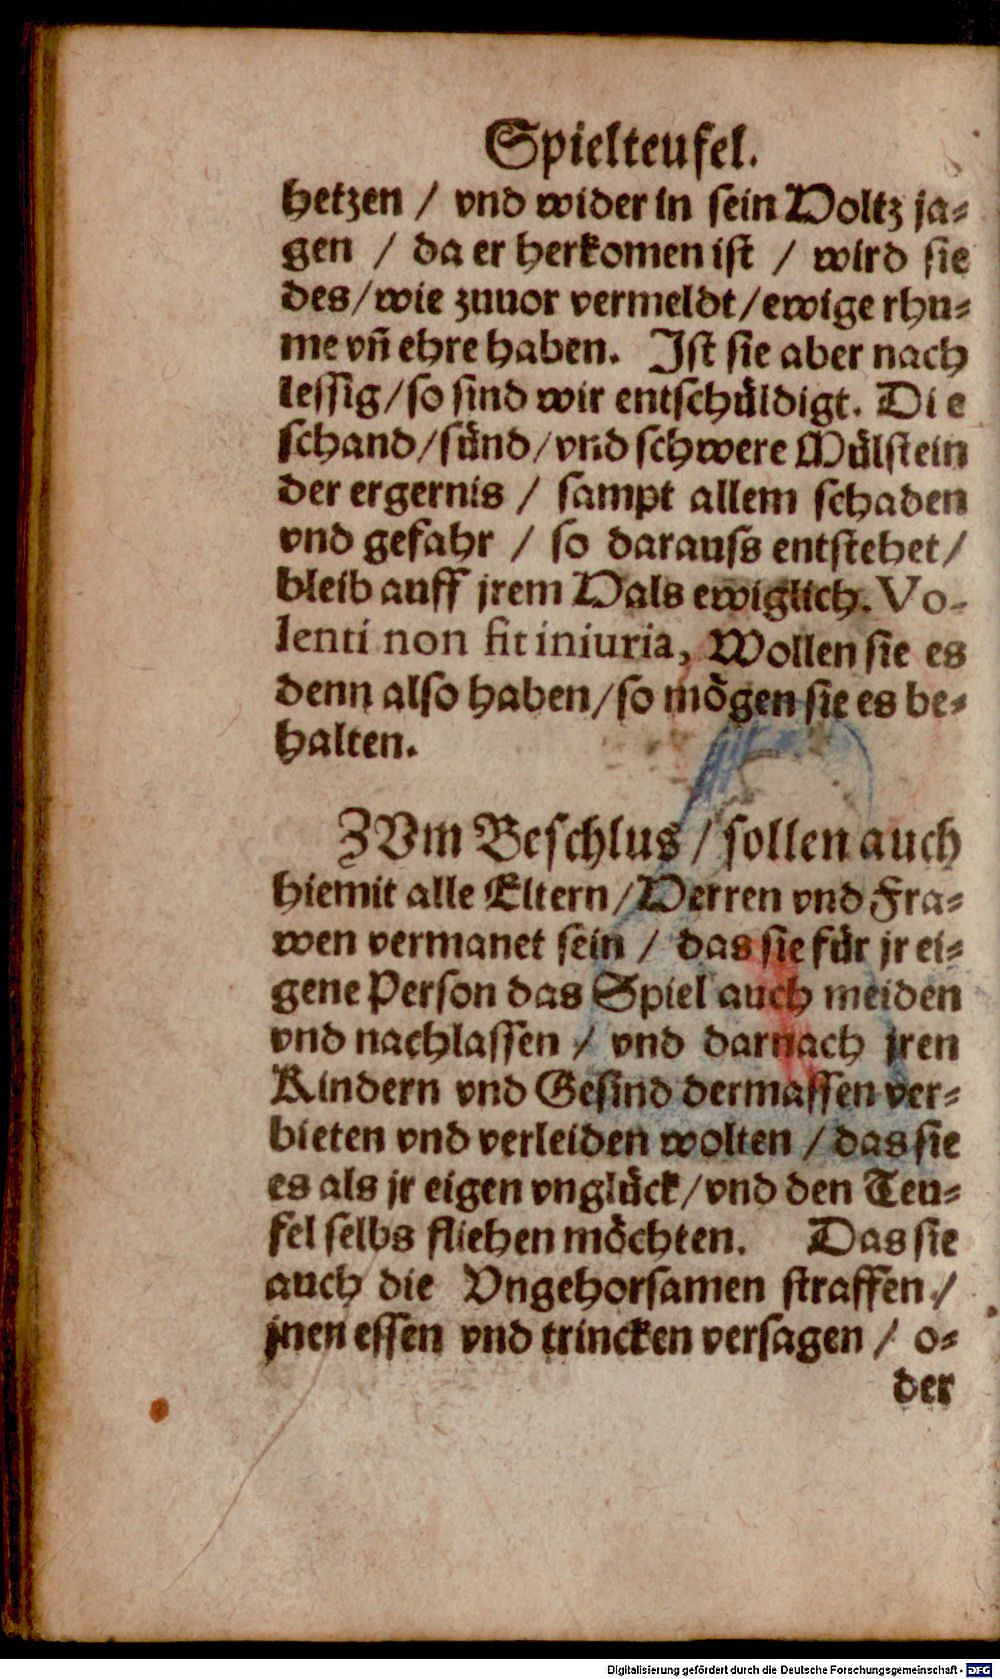 Spielteufel.
hetzen / vnd wider in sein Holtz ja⸗
gen / da er herkomen ist / wird sie
des/wie zuuor vermeldt/ewige rhu⸗
me vñ ehre haben. Ist sie aber nach
lessig/so sind wir entschüldigt. Die
schand/sünd/vnd schwere Mülstein
der ergernis / sampt allem schaden
vnd gefahr / so darauss entstehet/
bleib auff jrem Hals ewiglich. Vo-
lenti non fit iniuria, Wollen sie es
denn also haben/so mögen sie es be⸗
halten.
ZVm Beschlus / sollen auch
hiemit alle Eltern/Herren vnd Fra⸗
wen vermanet sein / das sie für jr ei⸗
gene Person das Spiel auch meiden
vnd nachlassen / vnd darnach jren
Kindern vnd Gesind dermassen ver⸗
bieten vnd verleiden wolten / das sie
es als jr eigen vnglück/vnd den Teu⸗
fel selbs fliehen möchten. Das sie
auch die Vngehorsamen straffen /
jnen essen vnd trincken versagen / o⸗
der
Digitalisierung gefördert durch die Deutsche Forschungsgemeinschaft - DFG